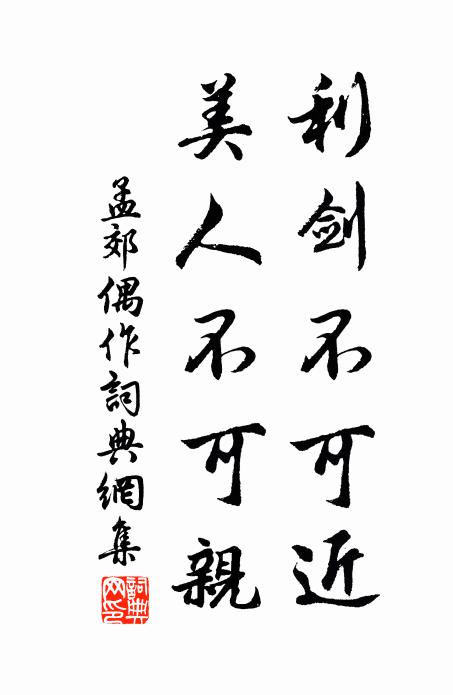 利劍不可近
美人不可親
孟郊偶作詞典網集
詞典網印